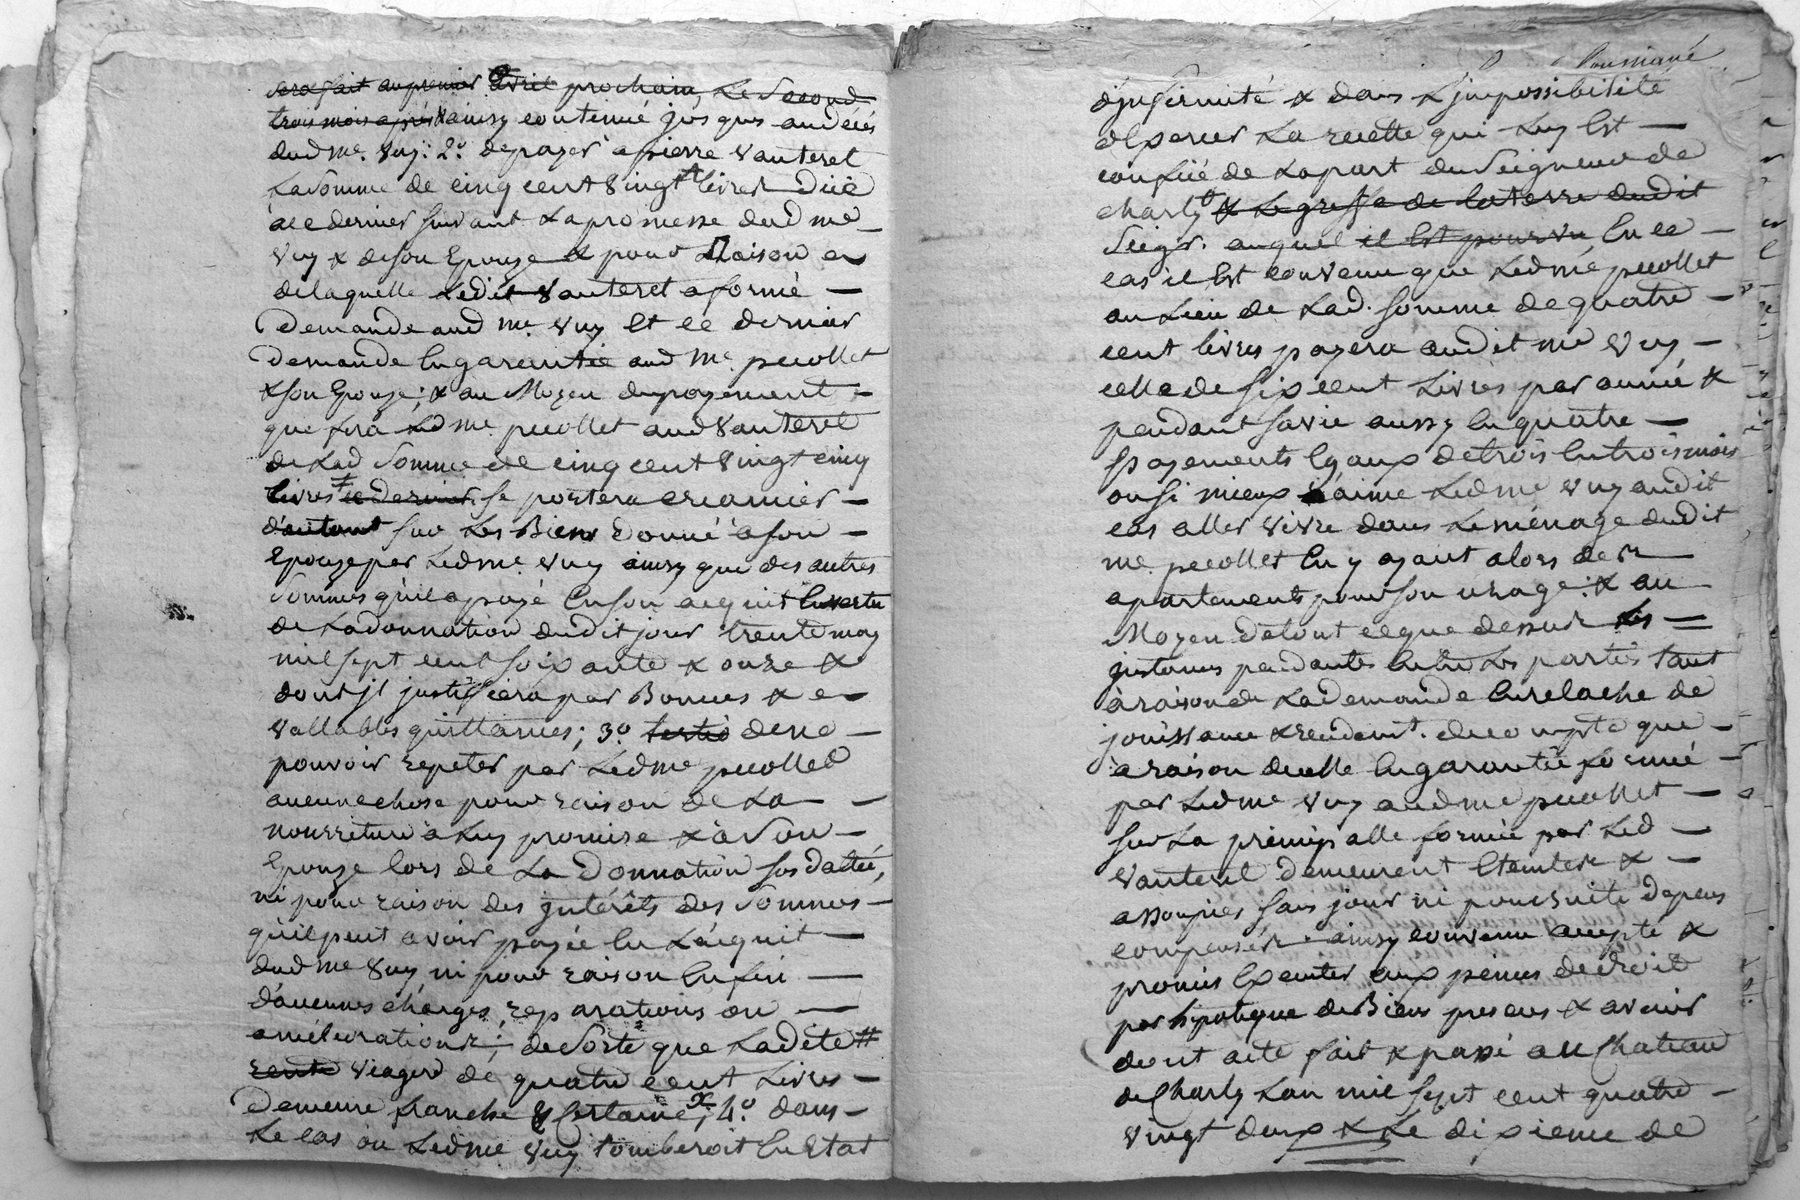 sera fait au premier avril prochain, Le second
trois mois après & ainsy continué jusques au décés
dud me. vuy: 2.° de payer a pierre vauteret
La somme de cinq cent vingt livres düe
à ce dernier suivant La promesse dud me
vuy & de son Epouze & pour Raison
de laquelle Ledit vauteret a formé
Demande aud me. vuy Et ce dernier
demande En garantie aud Me. pecollet
& son Epouze; & au Moyen du payement
que fera Led me. pecollet aud vauteret
de Lad somme de cinq cent vingt cinq
livres ce dernier se portera creancier
d'autant sur Les Biens donné à son
Epouze par Led me. vuy ainsy que des autres
sommes qu'il a payé En son acquit En vertu
de La donnation dudit jour trente may
mil sept cent soixante & onze &
dont jl justifiera par Bonnes &
vallables quittances; 3.° tertio de ne
pouvoir repeter par Led me pecollet
aucune chose pour raison de La
nourriture à Luy promise & à son
Epouze lors de La Donnation susdattée,
ni pour raison des jntérêts des sommes
qu'il peut avoir payée En L'acquit
dud me vuy ni pour raison Enfin
d'aucunes charges, reparations ou
améliorations; de sorte que Ladite #
rente viagere de quatre cent Livres
demeure franche & Certaine; 4.° dans
Le cas ou Led me vuy tomberoit En Etat
d'jnfirmité & dans L'jmpossibilité
d'Exercer La recette qui Luy Est
confiée de La part du Seigneur de
Charly & Le greffe de la terre dudit
Seigr. auquel il Est pourvu, En ce
cas il Est convenu que Led me pecollet
au Lieu de Lad. somme de quatre
cent livres payera audit me vuy
celle de six cent Livres par année &
pendant sa vie aussy En quatre
payements Egaux de trois En trois mois
ou si mieux n'aime Led me vuy audit
cas aller vivre dans Le ménage dudit
me. pecollet En y ayant alors des
apartements pour son usage: & au
Moyen de tout ce que dessus Les
jnstances pendantes Entre Les parties tant
à raison de La demande En relache de
jouissance & reddem.t de compte que
a raison de celle En garantie formée
par Led me vuy aud me pecollet
sur La principalle formée par Led
Vauteret demeurent Eteintes &
assoupies sans jour ni poursuite depens
compensés ainsy convenu accepté &
promis Executer aux peines de droit
par hipoteque de Biens presens & avenir
dont acte fait & passé au Chateau
de Charly L'an mil sept cent quatre
vingt deux & Le dixieme de